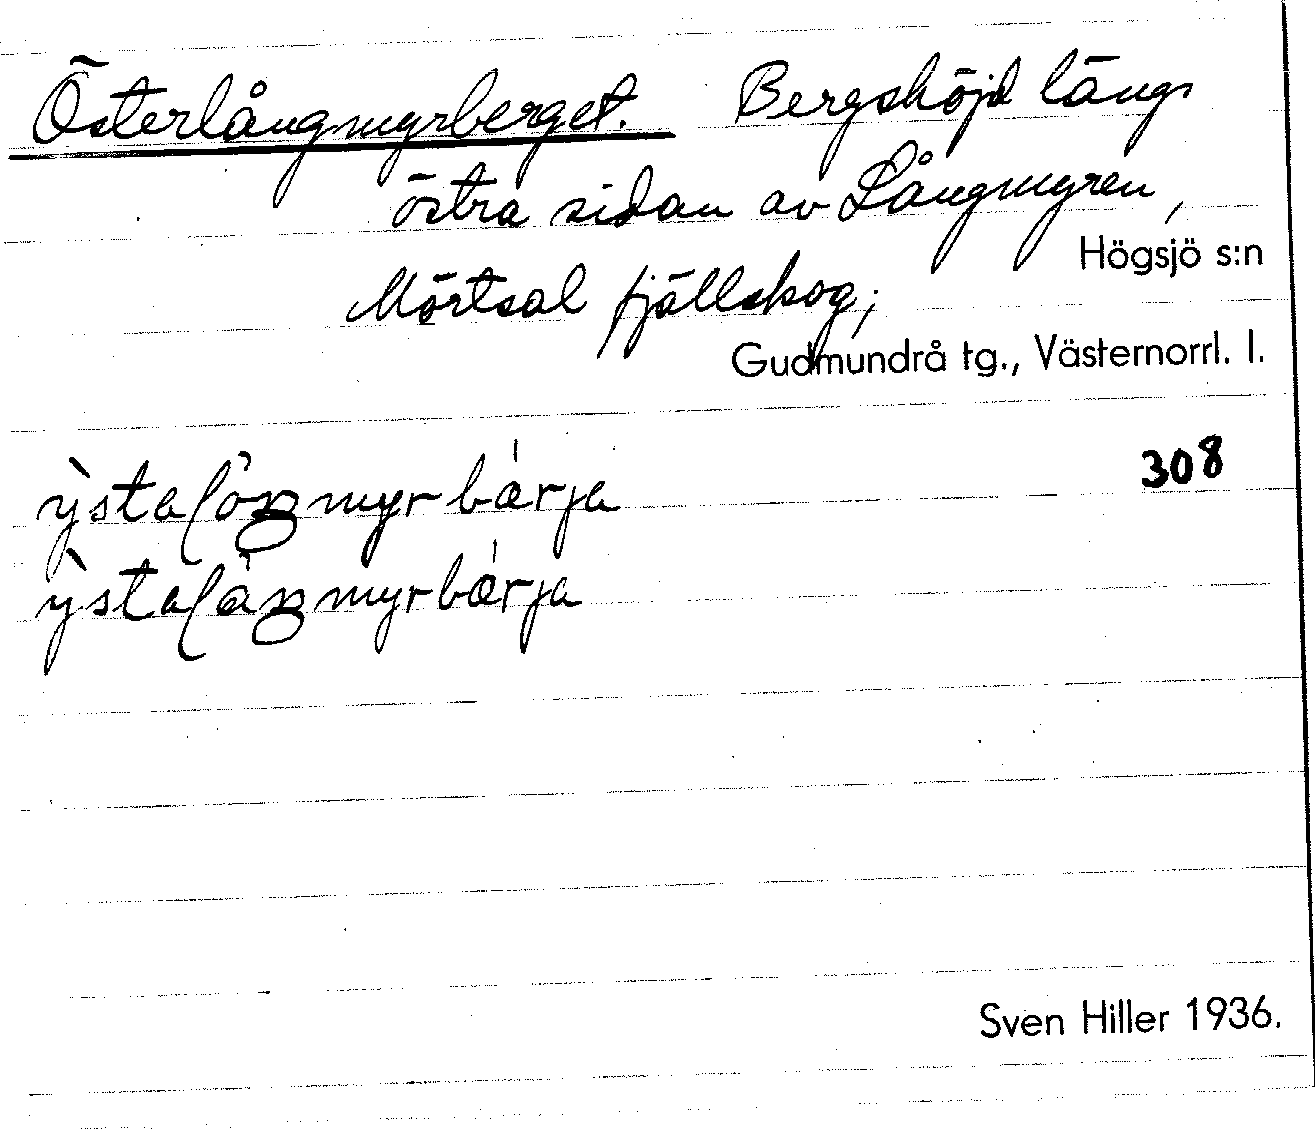 Österlångmyrberget. Bergshöjd längs
östra sidan av Långmyren,
Högsjö s:n
Mörtsal fjällskog;
Gudmundrå tg., Västernorrl. l.
308
Sven Hiller 1936.